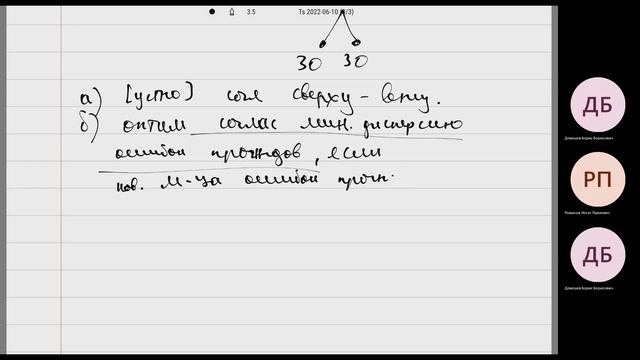 3.5 Ts 2022-06-10 (3/3)
30 30
а) [устно] согл сверху-вниз.
б) оптим соглас мин. дисперсию
ошибок прогнозов, если
ков. м-ца ошибок прогн.
ДБ
Демешев Борис Борисович
РП
Романов Игнат Павлович
ДБ
Демешев Борис Борисович